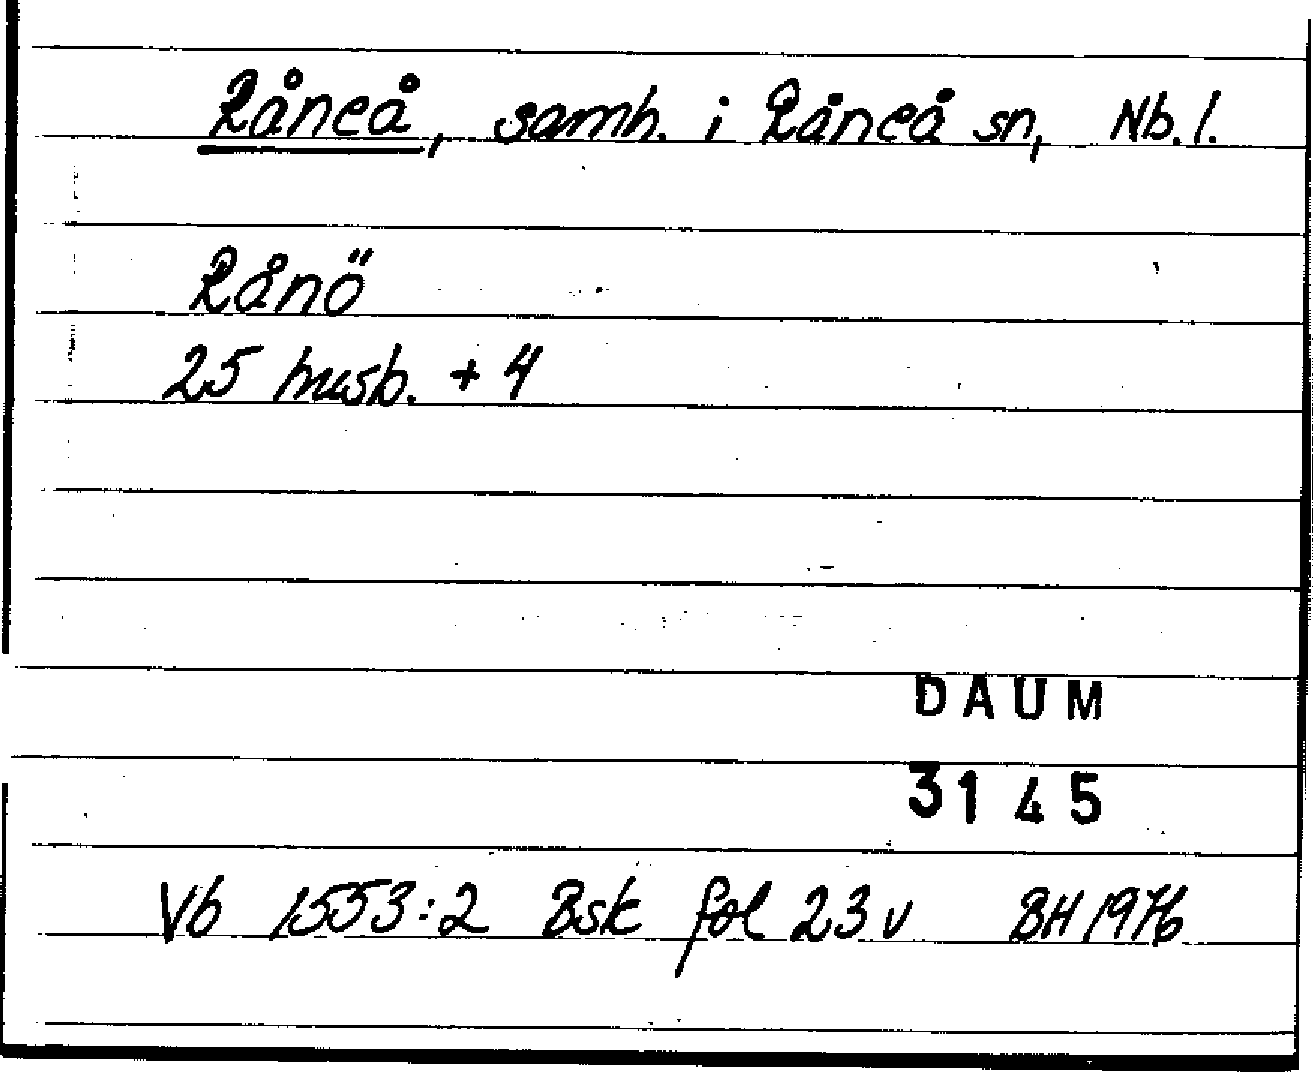 Råneå, samh. i Råneå sn, Nb. l.
Rånö
25 husb. + 4
DAUM
3145
Vb 1553:2 Bsk fol 23 v BH 1976